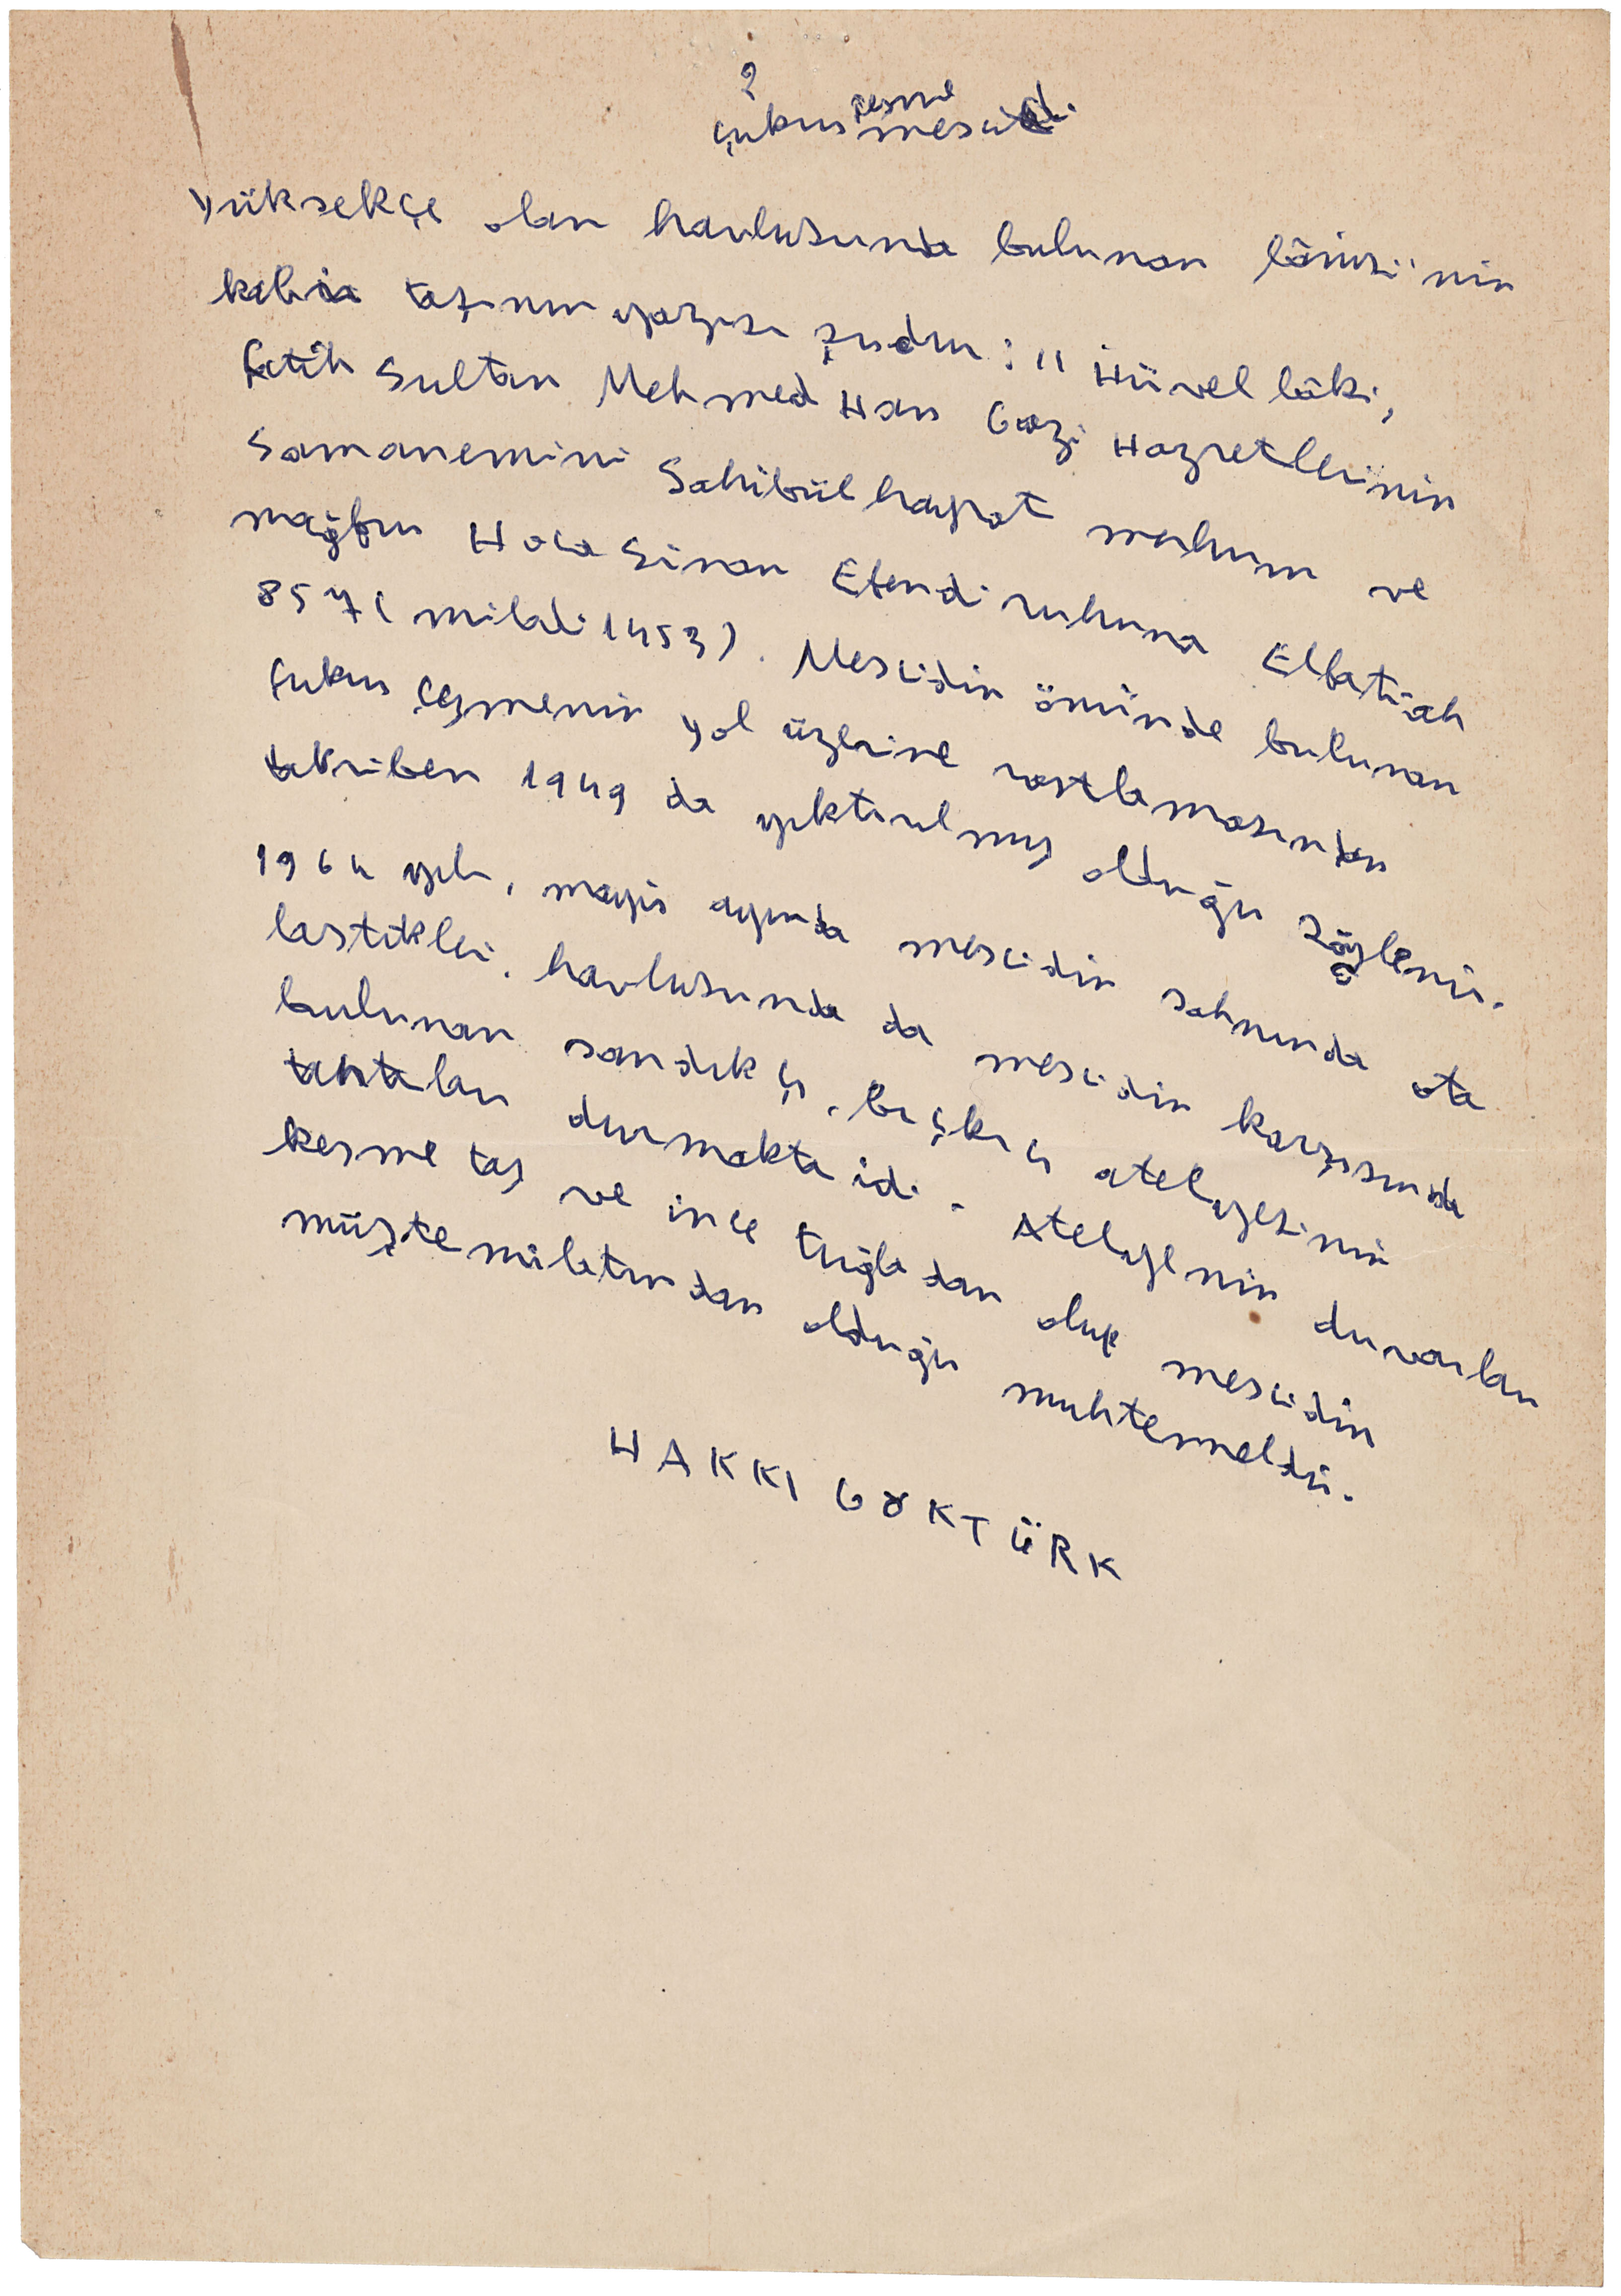 2
Çukurçeşme mescidi
Yüksekçe olan havlusunda bulunan bânisi'nin
kabir taşının yazısı şudur: " Hüvel bâki,
Fatih Sultan Mehmed Han Gazi Hazretlerinin
Samanemini Sahibül hayrat merhum ve
mağfur Hoca Sinan Efendi ruhuna Elfatiah
857 (miladi 1453). Mescidin önünde bulunan
Çukur Çeşmenin yol üzerine rastlamasından
takriben 1949 da yıktırılmış olduğu söylenir.
1964 yılı, mayıs ayında mescidin sahnında oto
lastikleri, havlusunda da mescidin karşısında
bulunan sandıkçı, bıçkıcı atelyesinin
tahtaları durmakta idi. Atelyenin duvarları
kesme taş ve ince tuğladan olup mescidin
müştemilatından olduğu muhtemeldir.
HAKKI GÖKTÜRK